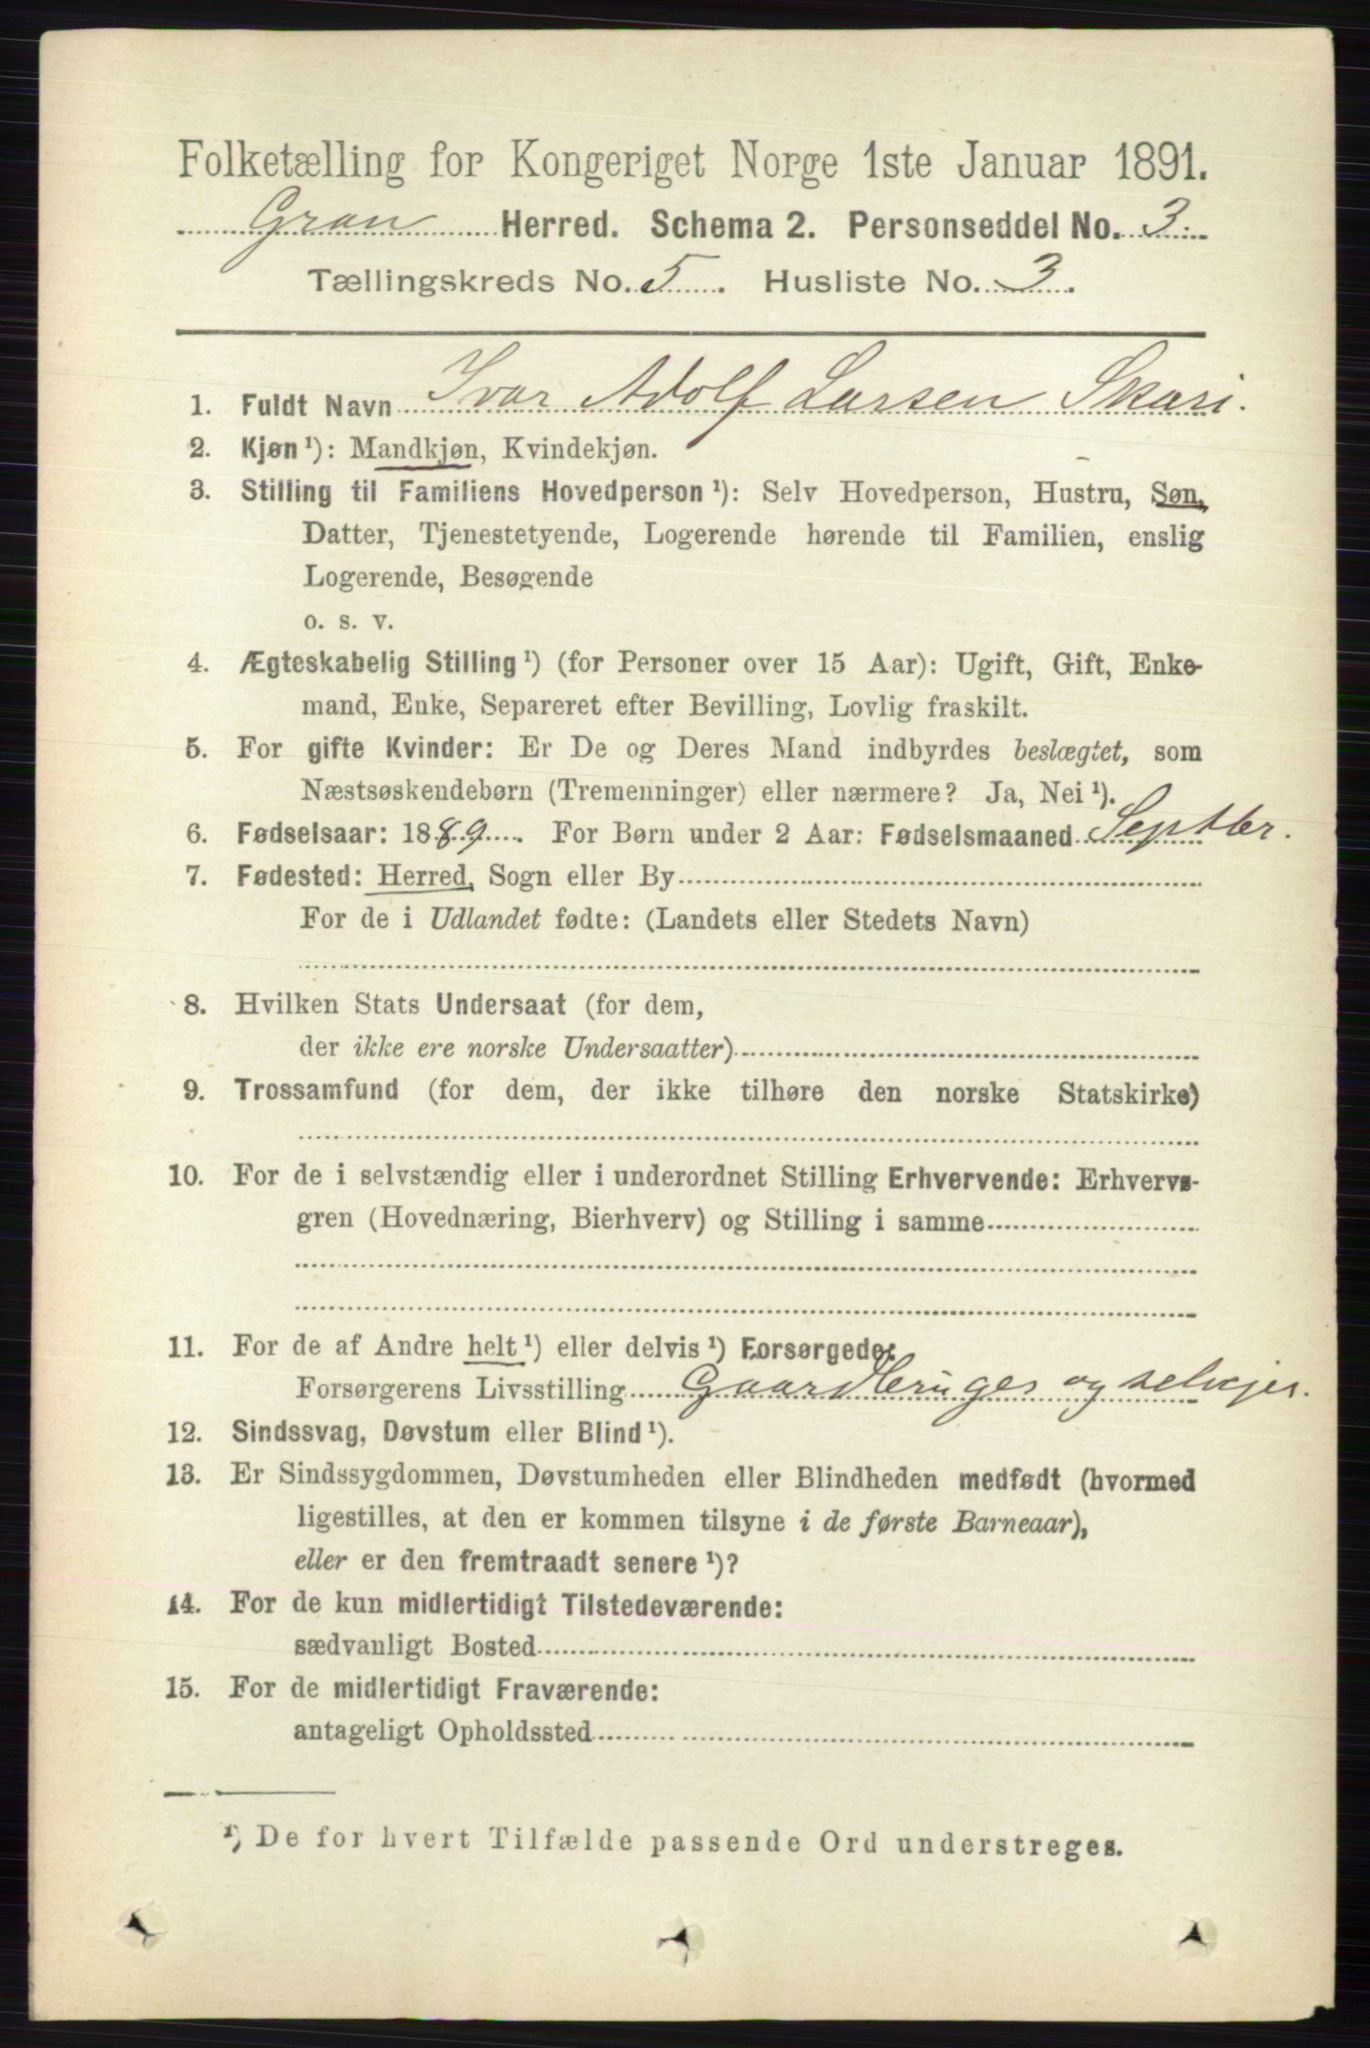 Folketælling for Kongeriget Norge 1ste Januar 1891.
Gran Herred. Schema 2. Personseddel No. 3.
Tællingskreds No. 5. Husliste No. 3.
1. Fuldt Navn Ivar Adolf Larsen Skari.
2. Kjøn ¹): Mandkjøn, Kvindekjøn.
3. Stilling til Familiens Hovedperson ¹): Selv Hovedperson, Hustru, Søn,
Datter, Tjenestetyende, Logerende hørende til Familien, enslig
Logerende, Besøgende
o. s. v.
4. Ægteskabelig Stilling ¹) (for Personer over 15 Aar): Ugift, Gift, Enke-
mand, Enke, Separeret efter Bevilling, Lovlig fraskilt.
5. For gifte Kvinder: Er De og Deres Mand indbyrdes beslægtet, som
Næstsøskendebørn (Tremenninger) eller nærmere? Ja, Nei ¹).
6. Fødselsaar: 1889. For Børn under 2 Aar: Fødselsmaaned Septbr.
7. Fødested: Herred, Sogn eller By
For de i Udlandet fødte: (Landets eller Stedets Navn)
8. Hvilken Stats Undersaat (for dem,
der ikke ere norske Undersaatter)
9. Trossamfund (for dem, der ikke tilhøre den norske Statskirke)
10. For de i selvstændig eller i underordnet Stilling Erhvervende: Erhvervs-
gren (Hovednæring, Bierhverv) og Stilling i samme
11. For de af Andre helt ¹) eller delvis ¹) Forsørgede:
Forsørgerens Livsstilling Gaardbruger og selveier.
12. Sindssvag, Døvstum eller Blind ¹).
13. Er Sindssygdommen, Døvstumheden eller Blindheden medfødt (hvormed
ligestilles, at den er kommen tilsyne i de første Barneaar),
eller er den fremtraadt senere ¹)?
14. For de kun midlertidigt Tilstedeværende:
sædvanligt Bosted
15. For de midlertidigt Fraværende:
antageligt Opholdssted
¹) De for hvert Tilfælde passende Ord understreges.